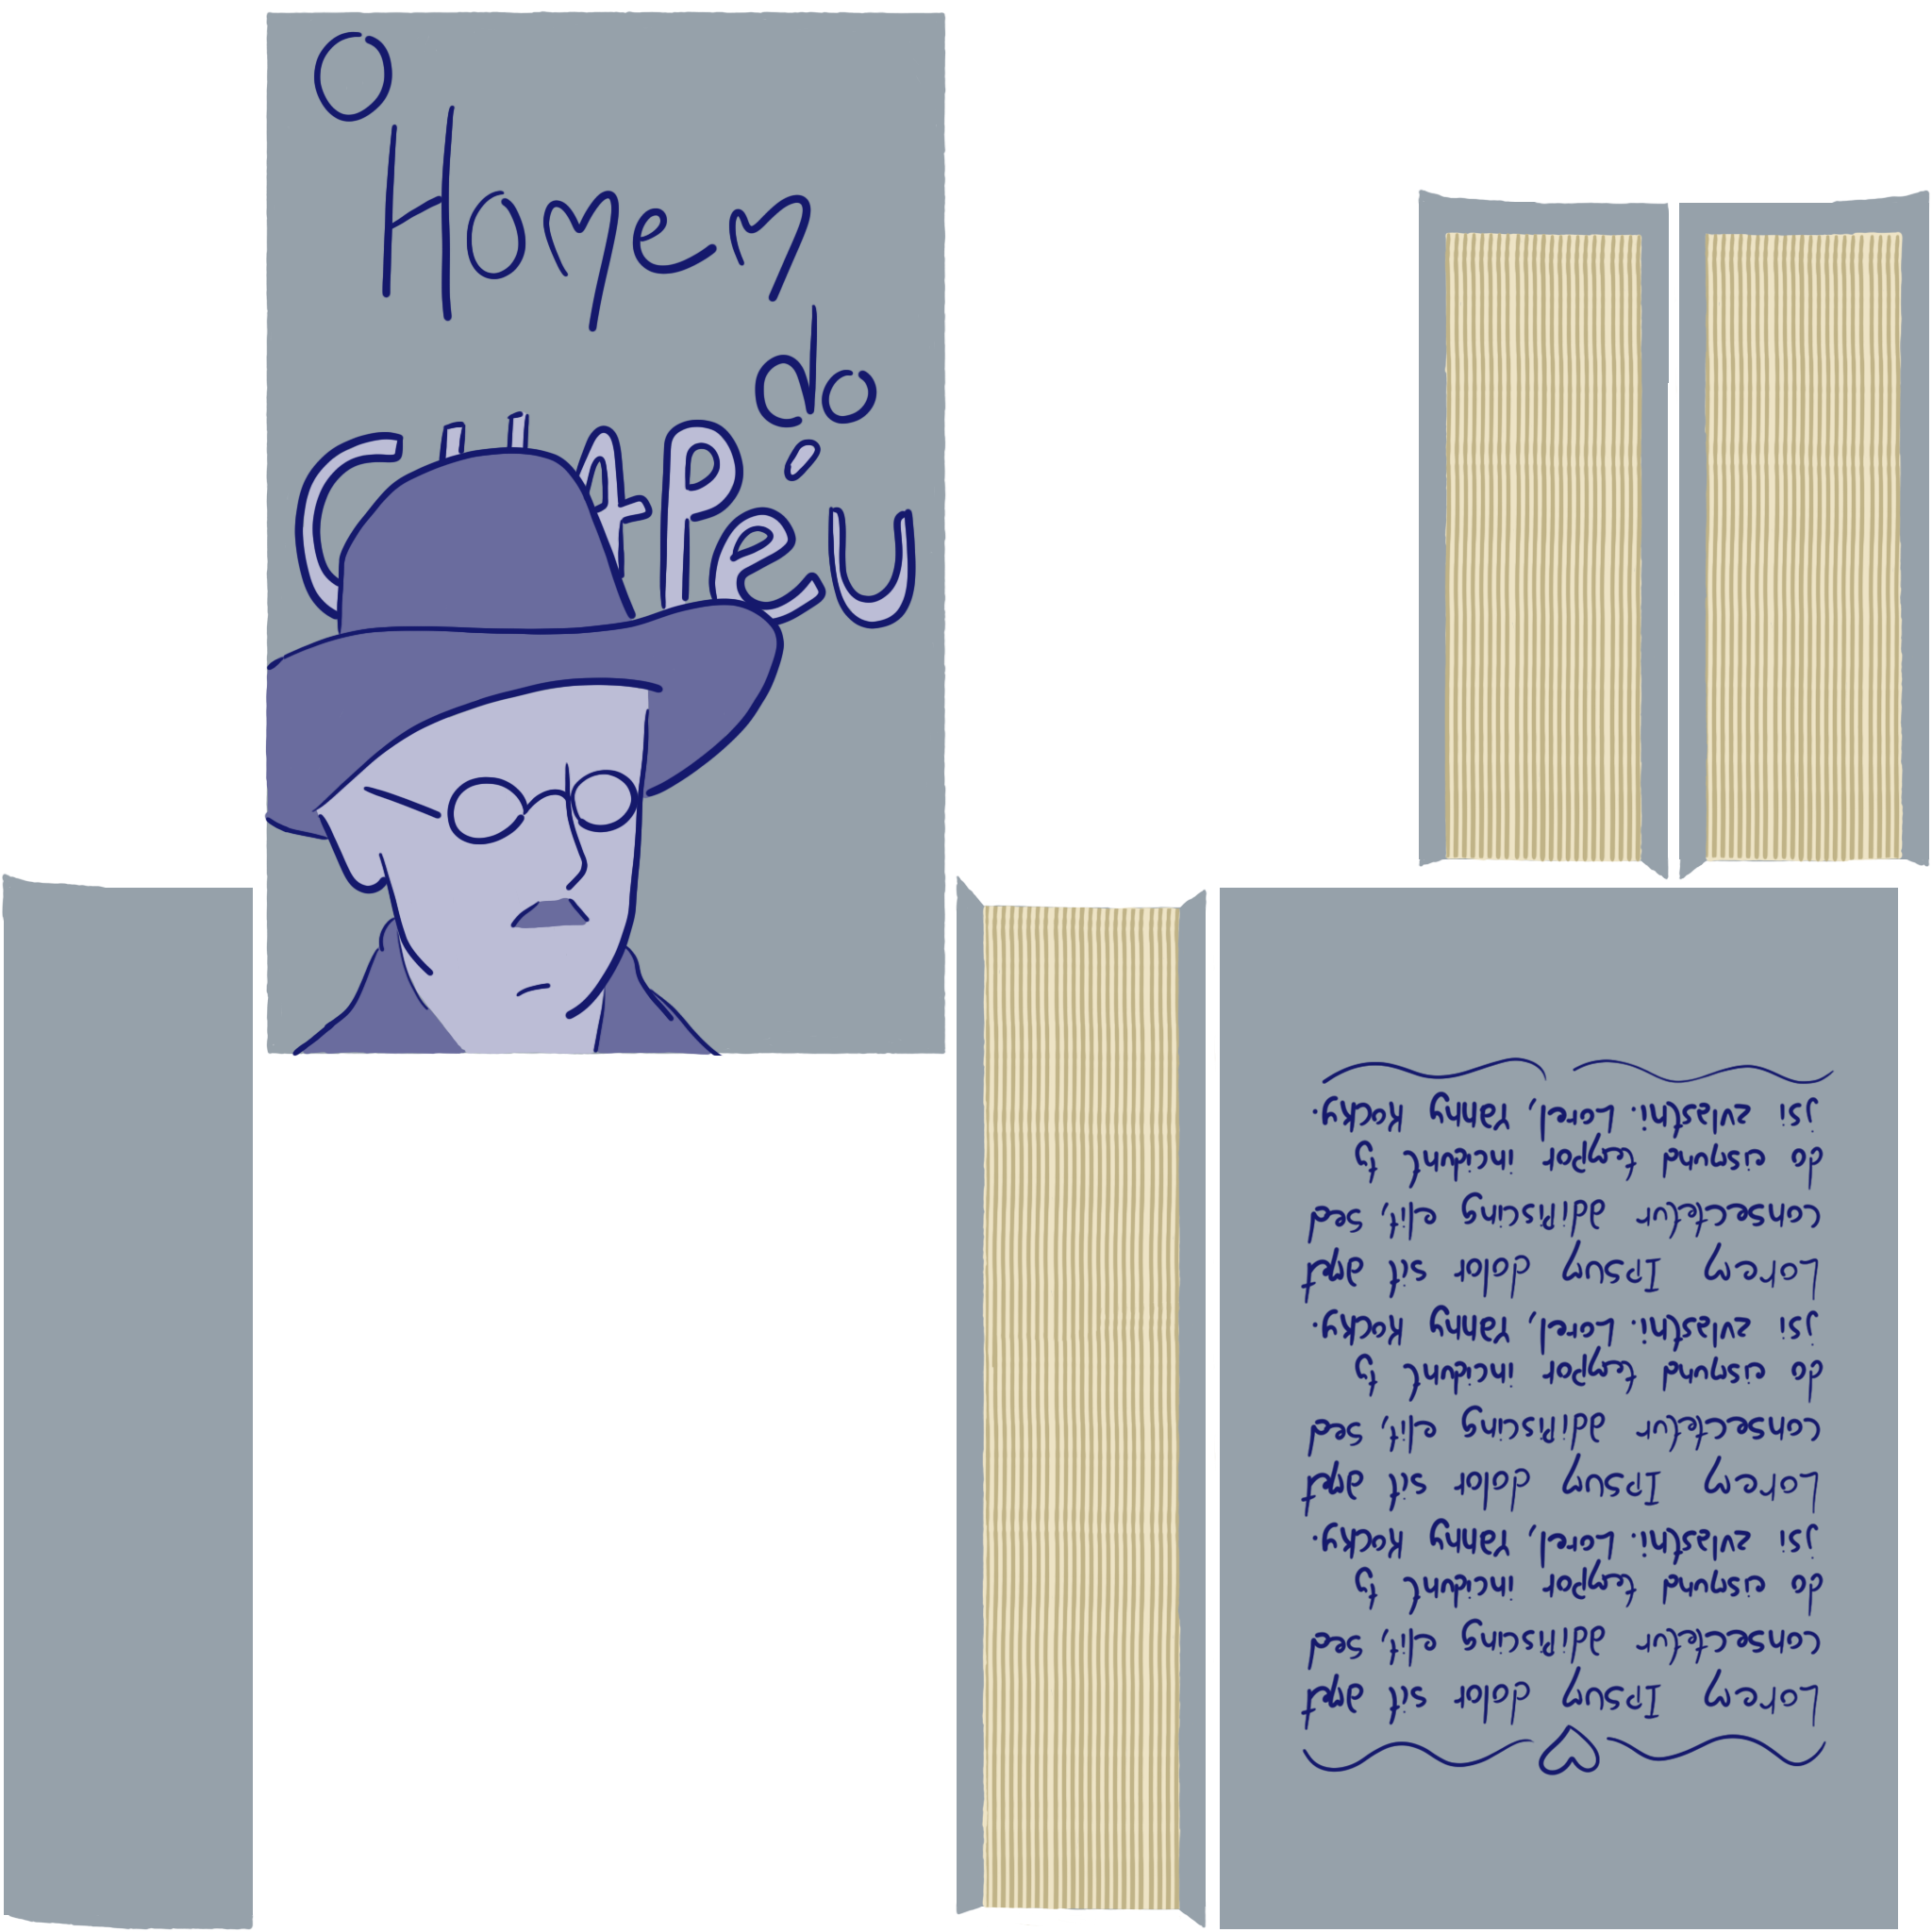 O
Homem
do
CHAPéU
Lorem Ipsum dolor sit amet
consectetur adipiscing elit, sed
do eismund tempor incidunt ty
jsi zvlastni. Lorel, Yanny Rocky.
Lorem Ipsum dolor sit amet
consectetur adipiscing elit, sed
do eismund tempor incidunt ty
jsi zvlastni. Lorel, Yanny Rocky.
Lorem Ipsum dolor sit amet
consectetur adipiscing elit, sed
do eismund tempor incidunt ty
jsi zvlastni. Lorel, Yanny Rocky.